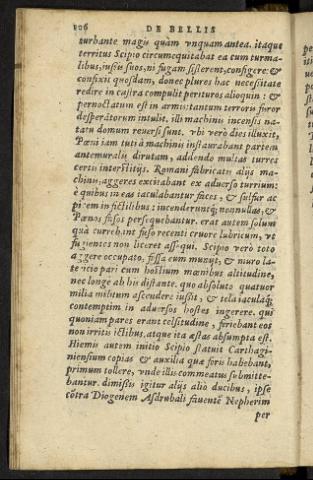 106 DE BELLIS
turbante magis quam vnquam antea. itaque
territus Scipio circumequitabat ea cum turma-
libus, iussis suos, ni fugam sisterent, configere: &
confixit quosdam, donec plures hac necessitate
redire in castra compulit perituros alioquin: &
pernoctatum est in armis: tantum terroris furor
desperatorum intulit. illi machinis incensis na-
tatu domum reuersi sunt. vbi verò dies illuxit,
Pœni iam tuti à machinis instaurabant partem
antemuralis dirutam, addendo multas turres
certis interstitijs. Romani fabricatis alijs ma-
chinis, aggeres excitabant ex aduerso turrium:
è quibus in eas iaculabantur faces, & sulfur ac
picem in fictilibus: incenderuntq; nonnullas, &
Pœnos fusos persequebantur. erat autem solum
quà curreb. int fuso recenti cruore lubricum, vt
fugientes non liceret assequi. Scipio verò toto
aggere occupato, fossa eum muniit, & muro la-
tericio pari cum hostium mœnibus altitudine,
nec longe ab his distante. quo absoluto quatuor
milia militum ascendere iussit, & tela iaculaq;
contemptim in aduersos hostes ingerere. qui
quoniam pares erant celsitudine, feriebant eos
non irritis ictibus. atque ita æstas absumpta est.
Hiemis autem initio Scipio statuit Carthagi-
niensium copias & auxilia quæ foris habebant,
primum tollere, vnde illis commeatus submitte-
bantur. dimissis igitur alijs aliò ducibus, ipse
cōtra Diogenem Asdrubali fauentē Nepherim
per